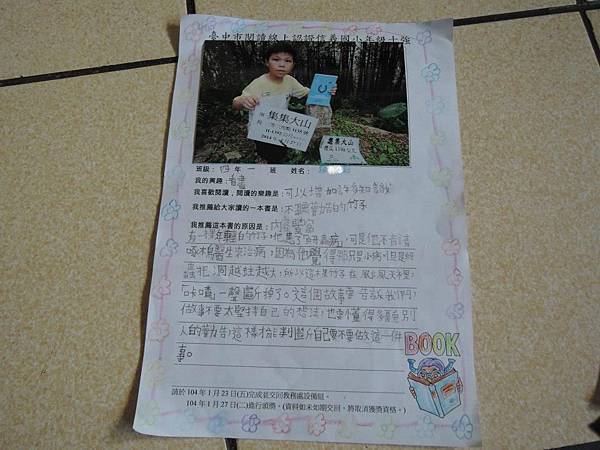 臺中市閱讀線上認證信義國小年級十強
集集大山
集集大山
班級：四年一班 姓名
我的興趣：看書
我喜歡閱讀，閱讀的樂趣是：可以增加許多知識
我推薦給大家讀的一本書是：不聽勸告的竹子
我推薦這本書的原因是：內容豐富
有一棵年輕的竹子，他患了
病，可是他不肯請
啄木鳥醫生來治病，因為他覺得那只是小病可但是
蟲把洞越蛀越大，所以這棵竹子在
「咔喳」一聲斷掉了。這個故事要告訴我們，
做事不要太堅持自己的想法，也要懂得多聽別
人的勸告，這樣才能判斷自己要不要做這一件
事。
BOOK
請於104年1月23日(五)完成並交回教務處設備組。
104年1月27日(二)進行頒獎。(資料如未如期交回，將取消獲獎資格。)